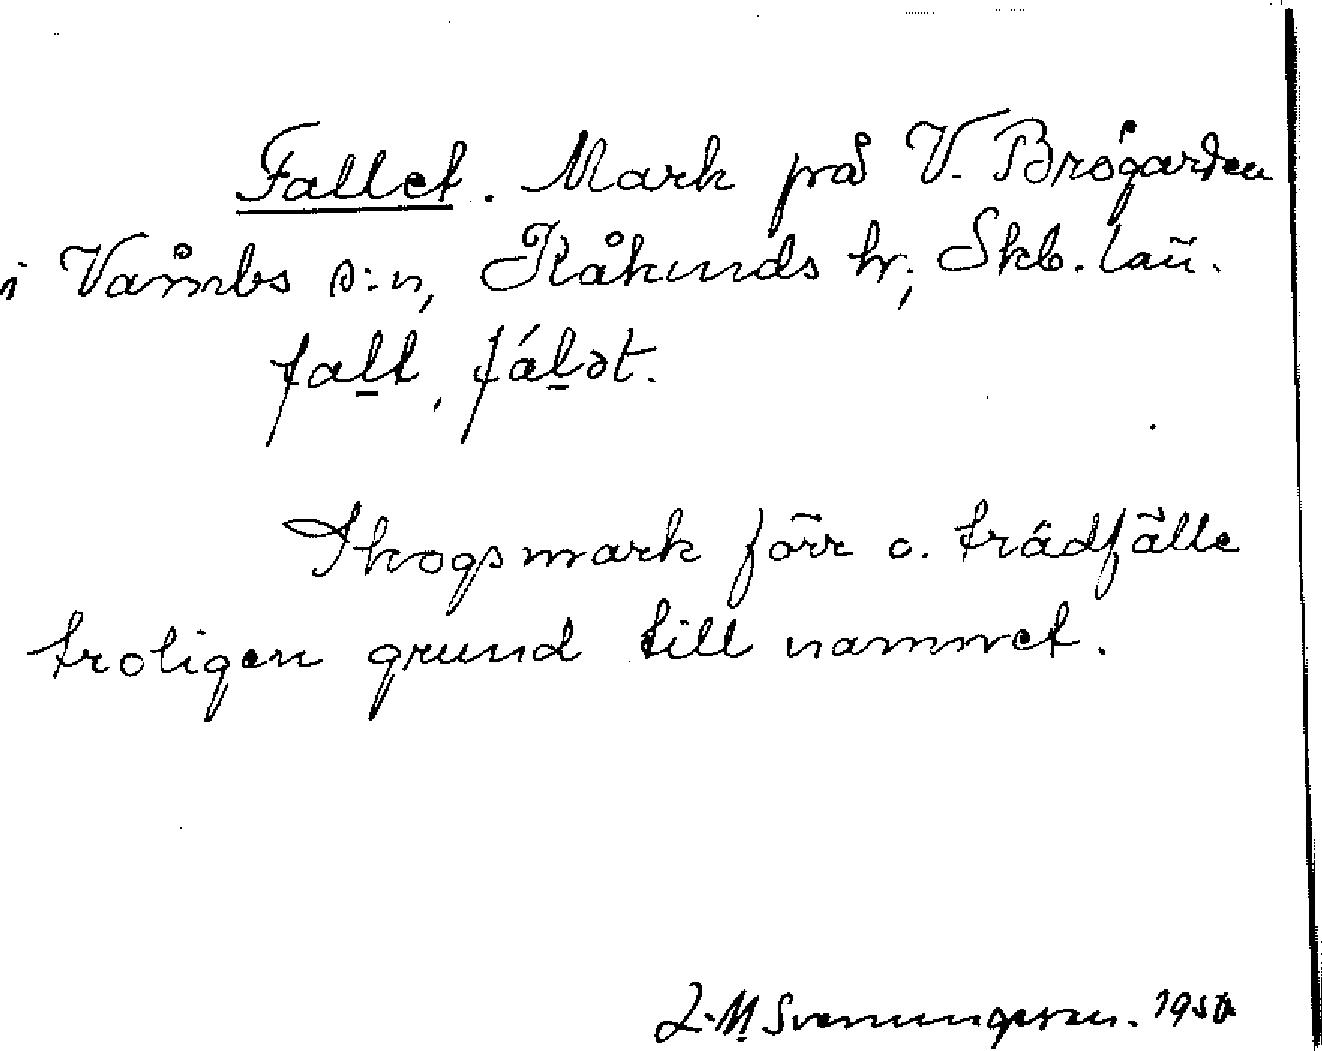 Fallet. Mark på V. Brogården
i Våmbs s:n, Kåkinds hr; Skb. län.
fal̲t, fál̲ət.
Skogsmark förr o. trädfälle
troligen grund till namnet.
L-M Svenungsson. 1950